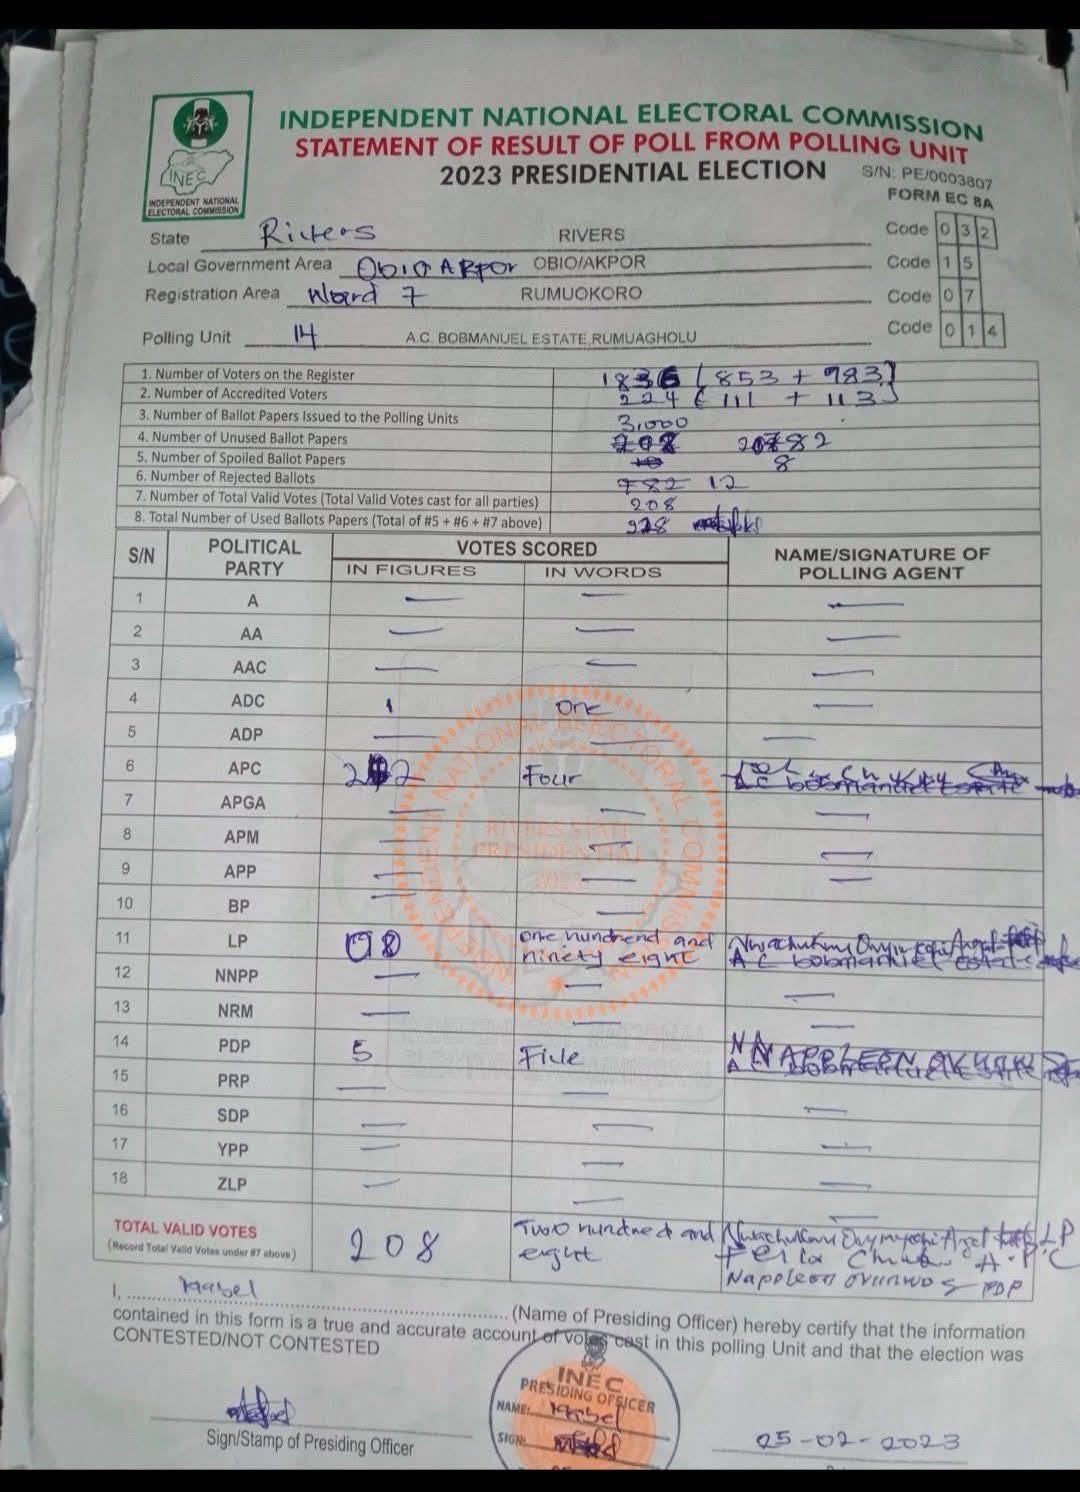 INDEPENDENT NATIONAL ELECTORAL COMMISSION
STATEMENT OF RESULT OF POLL FROM POLLING UNIT
2023 PRESIDENTIAL ELECTION
S/N: PE/0003807
FORM EC 8A
INEC
INDEPENDENT NATIONAL
ELECTORAL COMMISSION
State Rivers RIVERS Code 0 3 2
Local Government Area Obio Akpor OBIO/AKPOR Code 1 5
Registration Area Ward 7 RUMUOKORO Code 0 7
Polling Unit 14 A.C. BOBMANUEL ESTATE,RUMUAGHOLU Code 0 1 4
1. Number of Voters on the Register 1836 [853 + 983]
2. Number of Accredited Voters 224 (111 + 113)
3. Number of Ballot Papers Issued to the Polling Units 3,000
4. Number of Unused Ballot Papers
5. Number of Spoiled Ballot Papers 8
6. Number of Rejected Ballots 782 12
7. Number of Total Valid Votes (Total Valid Votes cast for all parties) 208
8. Total Number of Used Ballots Papers (Total of #5 + #6 + #7 above)
S/N POLITICAL PARTY VOTES SCORED NAME/SIGNATURE OF POLLING AGENT
IN FIGURES IN WORDS
1 A — — —
2 AA — — —
3 AAC — — —
4 ADC 1 one —
5 ADP — — —
6 APC Four
7 APGA — — —
8 APM — — —
9 APP — — —
10 BP — —
11 LP one hundrend and
ninety eight
12 NNPP — — —
13 NRM — — —
14 PDP 5 Five
15 PRP — —
16 SDP — — —
17 YPP — — —
18 ZLP — — —
TOTAL VALID VOTES
(Record Total Valid Votes under #7 above)
208 Two hundred and
eight
LP
Felix A.P.C
Napoleon PDP
INDEPENDENT NATIONAL ELECTORAL COMMISSION
RIVERS STATE
PRESIDENTIAL
2023
I, (Name of Presiding Officer) hereby certify that the information
contained in this form is a true and accurate account of votes cast in this polling Unit and that the election was
CONTESTED/NOT CONTESTED
INEC
PRESIDING OFFICER
NAME:
SIGN:
Sign/Stamp of Presiding Officer
25-02-2023